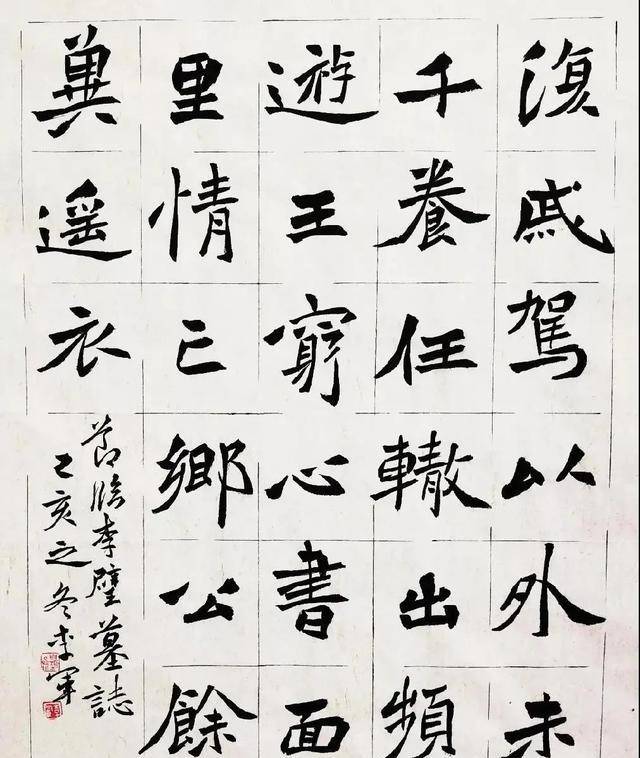 復戚駕以外未
千養任轍出頻
遊王窮心書面
里情已鄉公餘
冀遥衣
節臨李璧墓誌
己亥之冬李軍